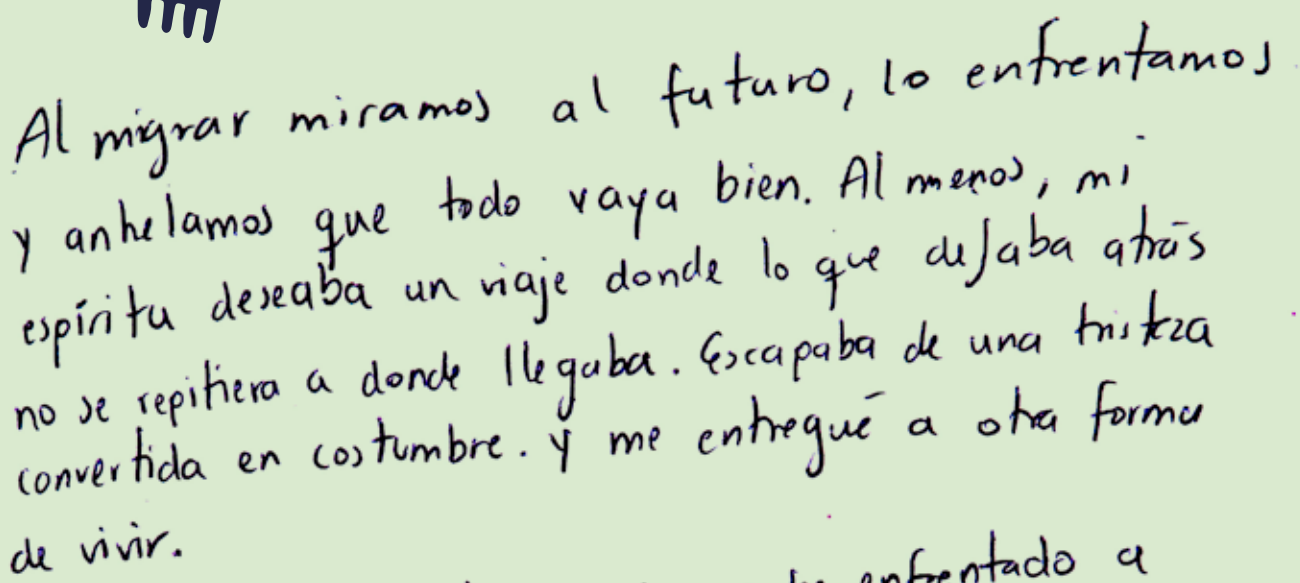 Al migrar miramos al futuro, lo enfrentamos
y anhelamos que todo vaya bien. Al menos, mi
espíritu deseaba un viaje donde lo que dejaba atrás
no se repitiera a donde llegaba. Escapaba de una tristeza
convertida en costumbre. Y me entregué a otra forma
de vivir.
enfrentado a